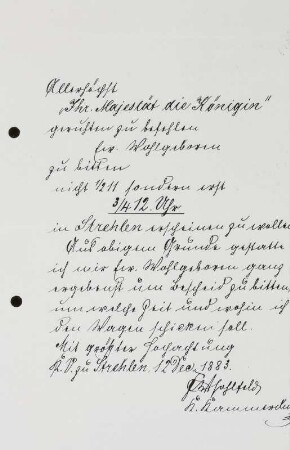 Allerhöchst
"Ihr. Majestät die Königin"
geruhten zu befehlen
Ew. Wohlgeboren
zu bitten
nicht 1/2 11 sondern erst
3/4 12. Uhr
in Strehlen erscheinen zu wollen.
Aus obigem Grunde gestatte
ich mir Ew. Wohlgeboren ganz
ergebenst um Bescheid zu bitten,
um welche Zeit und wohin ich
den Wagen schicken soll.
Mit größter Hochachtung
K. V. zu Strehlen. 12 Dec. 1883.
K. Kammerdin